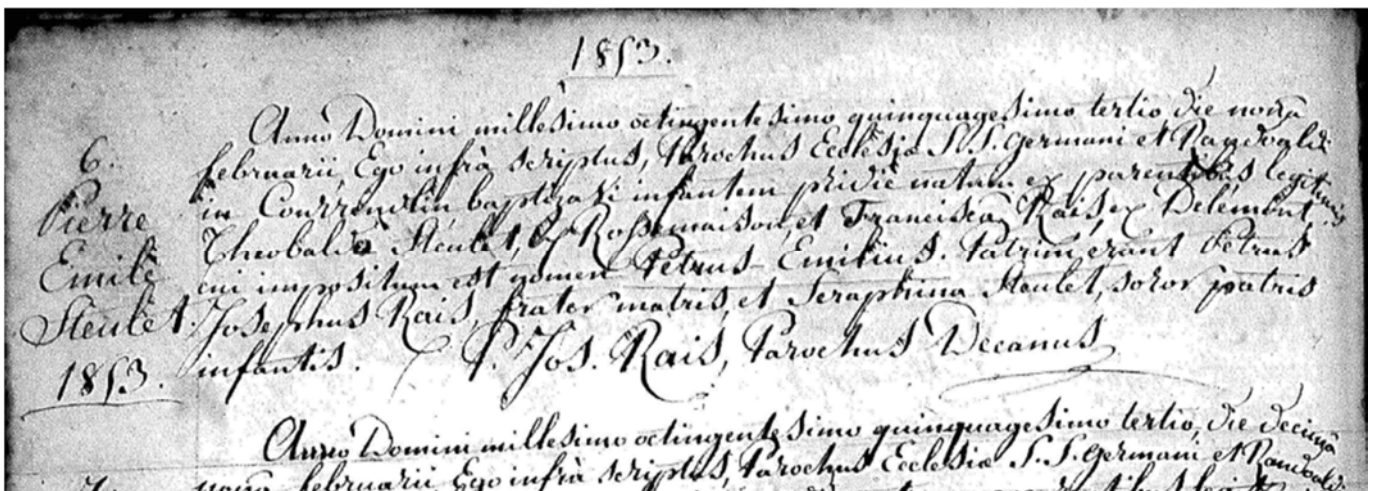 1853.
Anno Domini millesimo octingentesimo quinquagesimo tertio, die nonâ
februarii, Ego infrà scriptus, Parochus Ecclesiæ S.S. Germani et Randoaldi
in Courrendlin, baptizavi infantem pridiè natum ex parentibus legitimis
Theobaldo Steulet, ex Rossemaison, et Franciscâ Rais, ex Delémont,
cui impositum est nomen Petrus Emilius. Patrini erant Petrus
Josephus Rais, frater matris, et Seraphina Steulet, soror patris
infantis. P. Jos. Rais, Parochus Decanus
6.
Pierre
Emile
Steulet.
1853.
Anno Domini millesimo octingentesimo quinquagesimo tertio, die decimâ
nonâ februarii, Ego infrà scriptus, Parochus Ecclesiæ S.S. Germani et Randoaldi